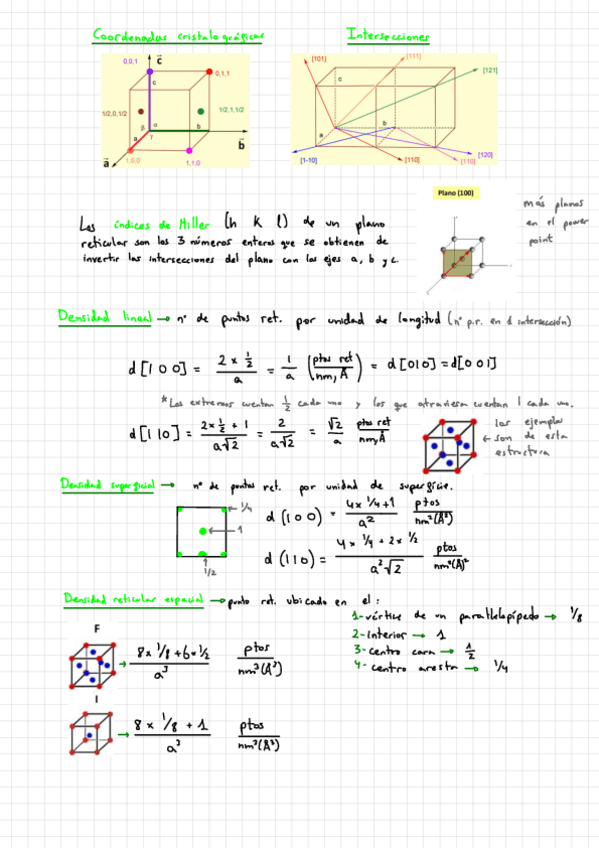 Coordenadas cristalográficas
Intersecciones
0,0,1
c
0,1,1
c
1/2,0,1/2
1/2,1,1/2
β
α
γ
a
b
b
a
1,0,0
1,1,0
[101]
[111]
[121]
c
a
b
[1-10]
[110]
[110]
[120]
Plano (100)
más planos
en el power
point
Los índices de Miller (h k l) de un plano
reticular son los 3 números enteros que se obtienen de
invertir las intersecciones del plano con los ejes a, b y c.
Densidad lineal → nº de puntos ret. por unidad de longitud (nº p.r. en d intersección)
d [1 0 0] = 2 x 1/2 / a = 1/a (ptos ret / nm, Å) = d [010] = d[0 0 1]
*Los extremos cuentan 1/2 cada uno y los que atraviesa cuentan 1 cada uno.
d [1 1 0] = 2x 1/2 + 1 / a√2 = 2 / a√2 = √2 / a ptos ret / nm,Å
los ejemplos
← son de esta
estructura
Densidad superficial → nº de puntos ret. por unidad de superficie.
1/4
1
1/2
d (1 0 0) = 4x 1/4 + 1 / a² ptos / nm²(Å²)
d (1 1 0) = 4 x 1/4 + 2 x 1/2 / a²√2 ptos / nm²(Å)²
Densidad reticular espacial → punto ret. ubicado en el :
1-vértice de un parallelepípedo → 1/8
2-Interior → 1
3-centro cara → 1/2
4-centro aresta → 1/4
F
→ 8x 1/8 + 6x 1/2 / a³ ptos / nm³(Å³)
I
→ 8 x 1/8 + 1 / a³ ptos / nm³(Å³)